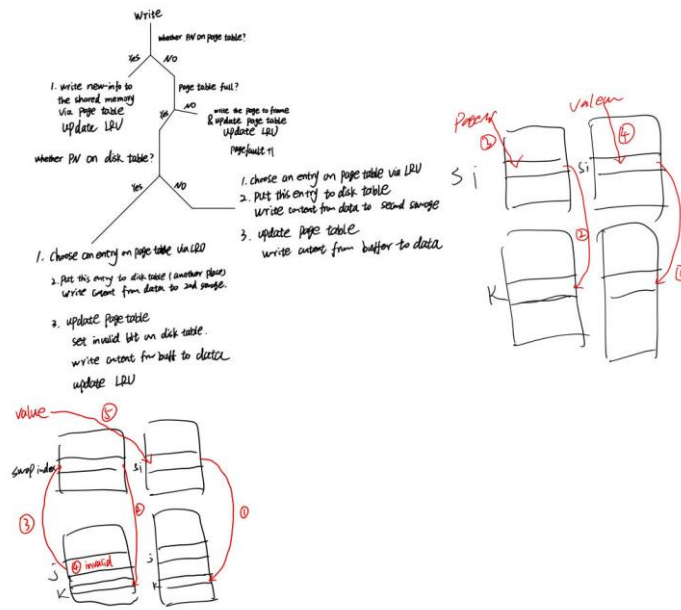 Write
whether PN on page table?
Yes
NO
1. write new-info to
the shared memory
via page table
update LRU
Page table full?
Yes
NO
write the page to frame
& update page table
update LRU
pagefault +1
whether PN on disk table?
Yes
NO
1. choose an entry on page table via LRU
2. Put this entry to disk table
write content from data to second storage
3. update page table
write content from buffer to data
1. choose an entry on page table via LRU
2. Put this entry to disk table (another place)
write content from data to 2nd storage.
3. update page table
set invalid bit on disk table.
write content from buff to data
update LRU
③
④
si
si
②
①
K
value
⑤
swap index
si
③
①
j
④ invalid
K
j
K